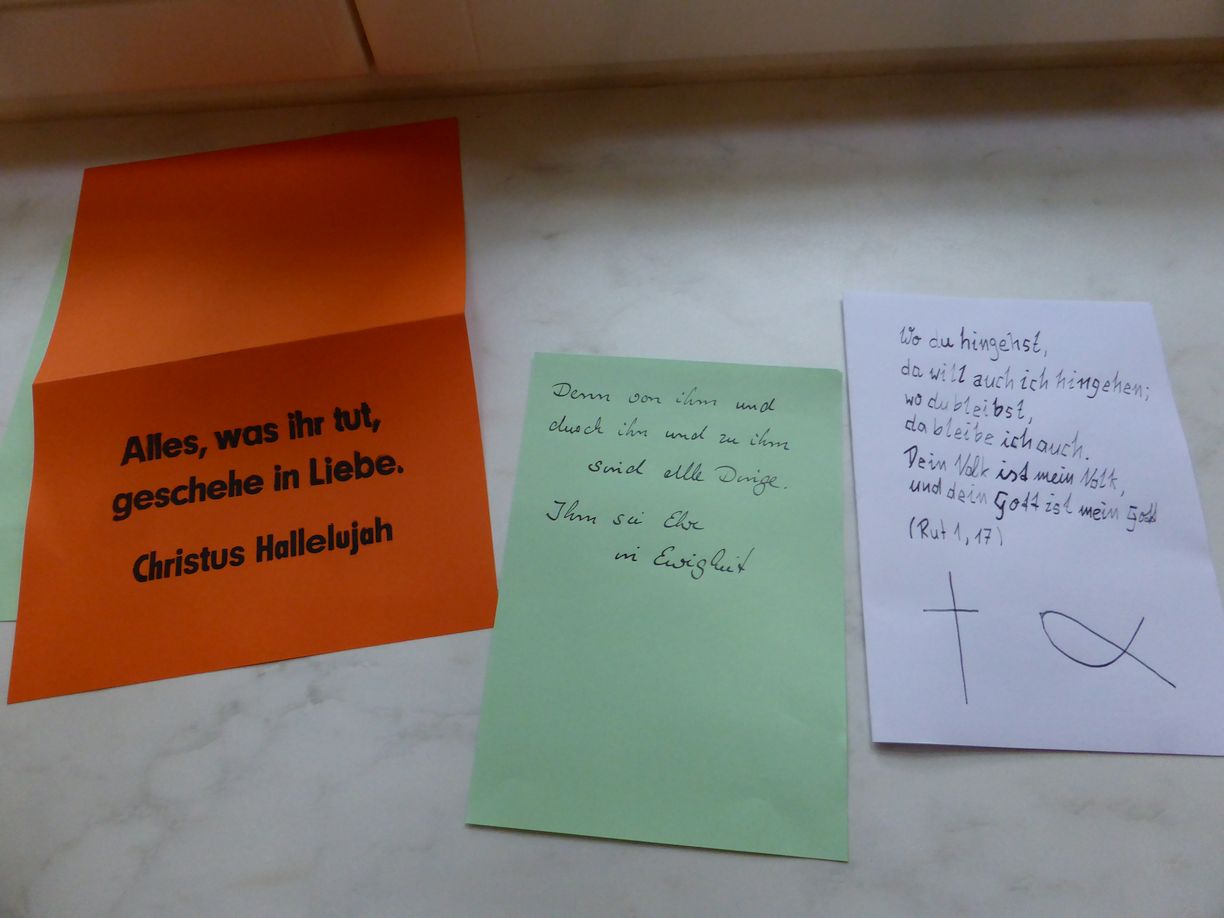 Alles, was ihr tut,
geschehe in Liebe.
Christus Hallelujah
Denn von ihm und
durch ihn und zu ihm
sind alle Dinge.
Ihm sei Ehre
in Ewigkeit
Wo du hingehst,
da will auch ich hingehen;
wo du bleibst,
da bleibe ich auch.
Dein Volk ist mein Volk,
und dein Gott ist mein Gott
(Rut 1, 17)